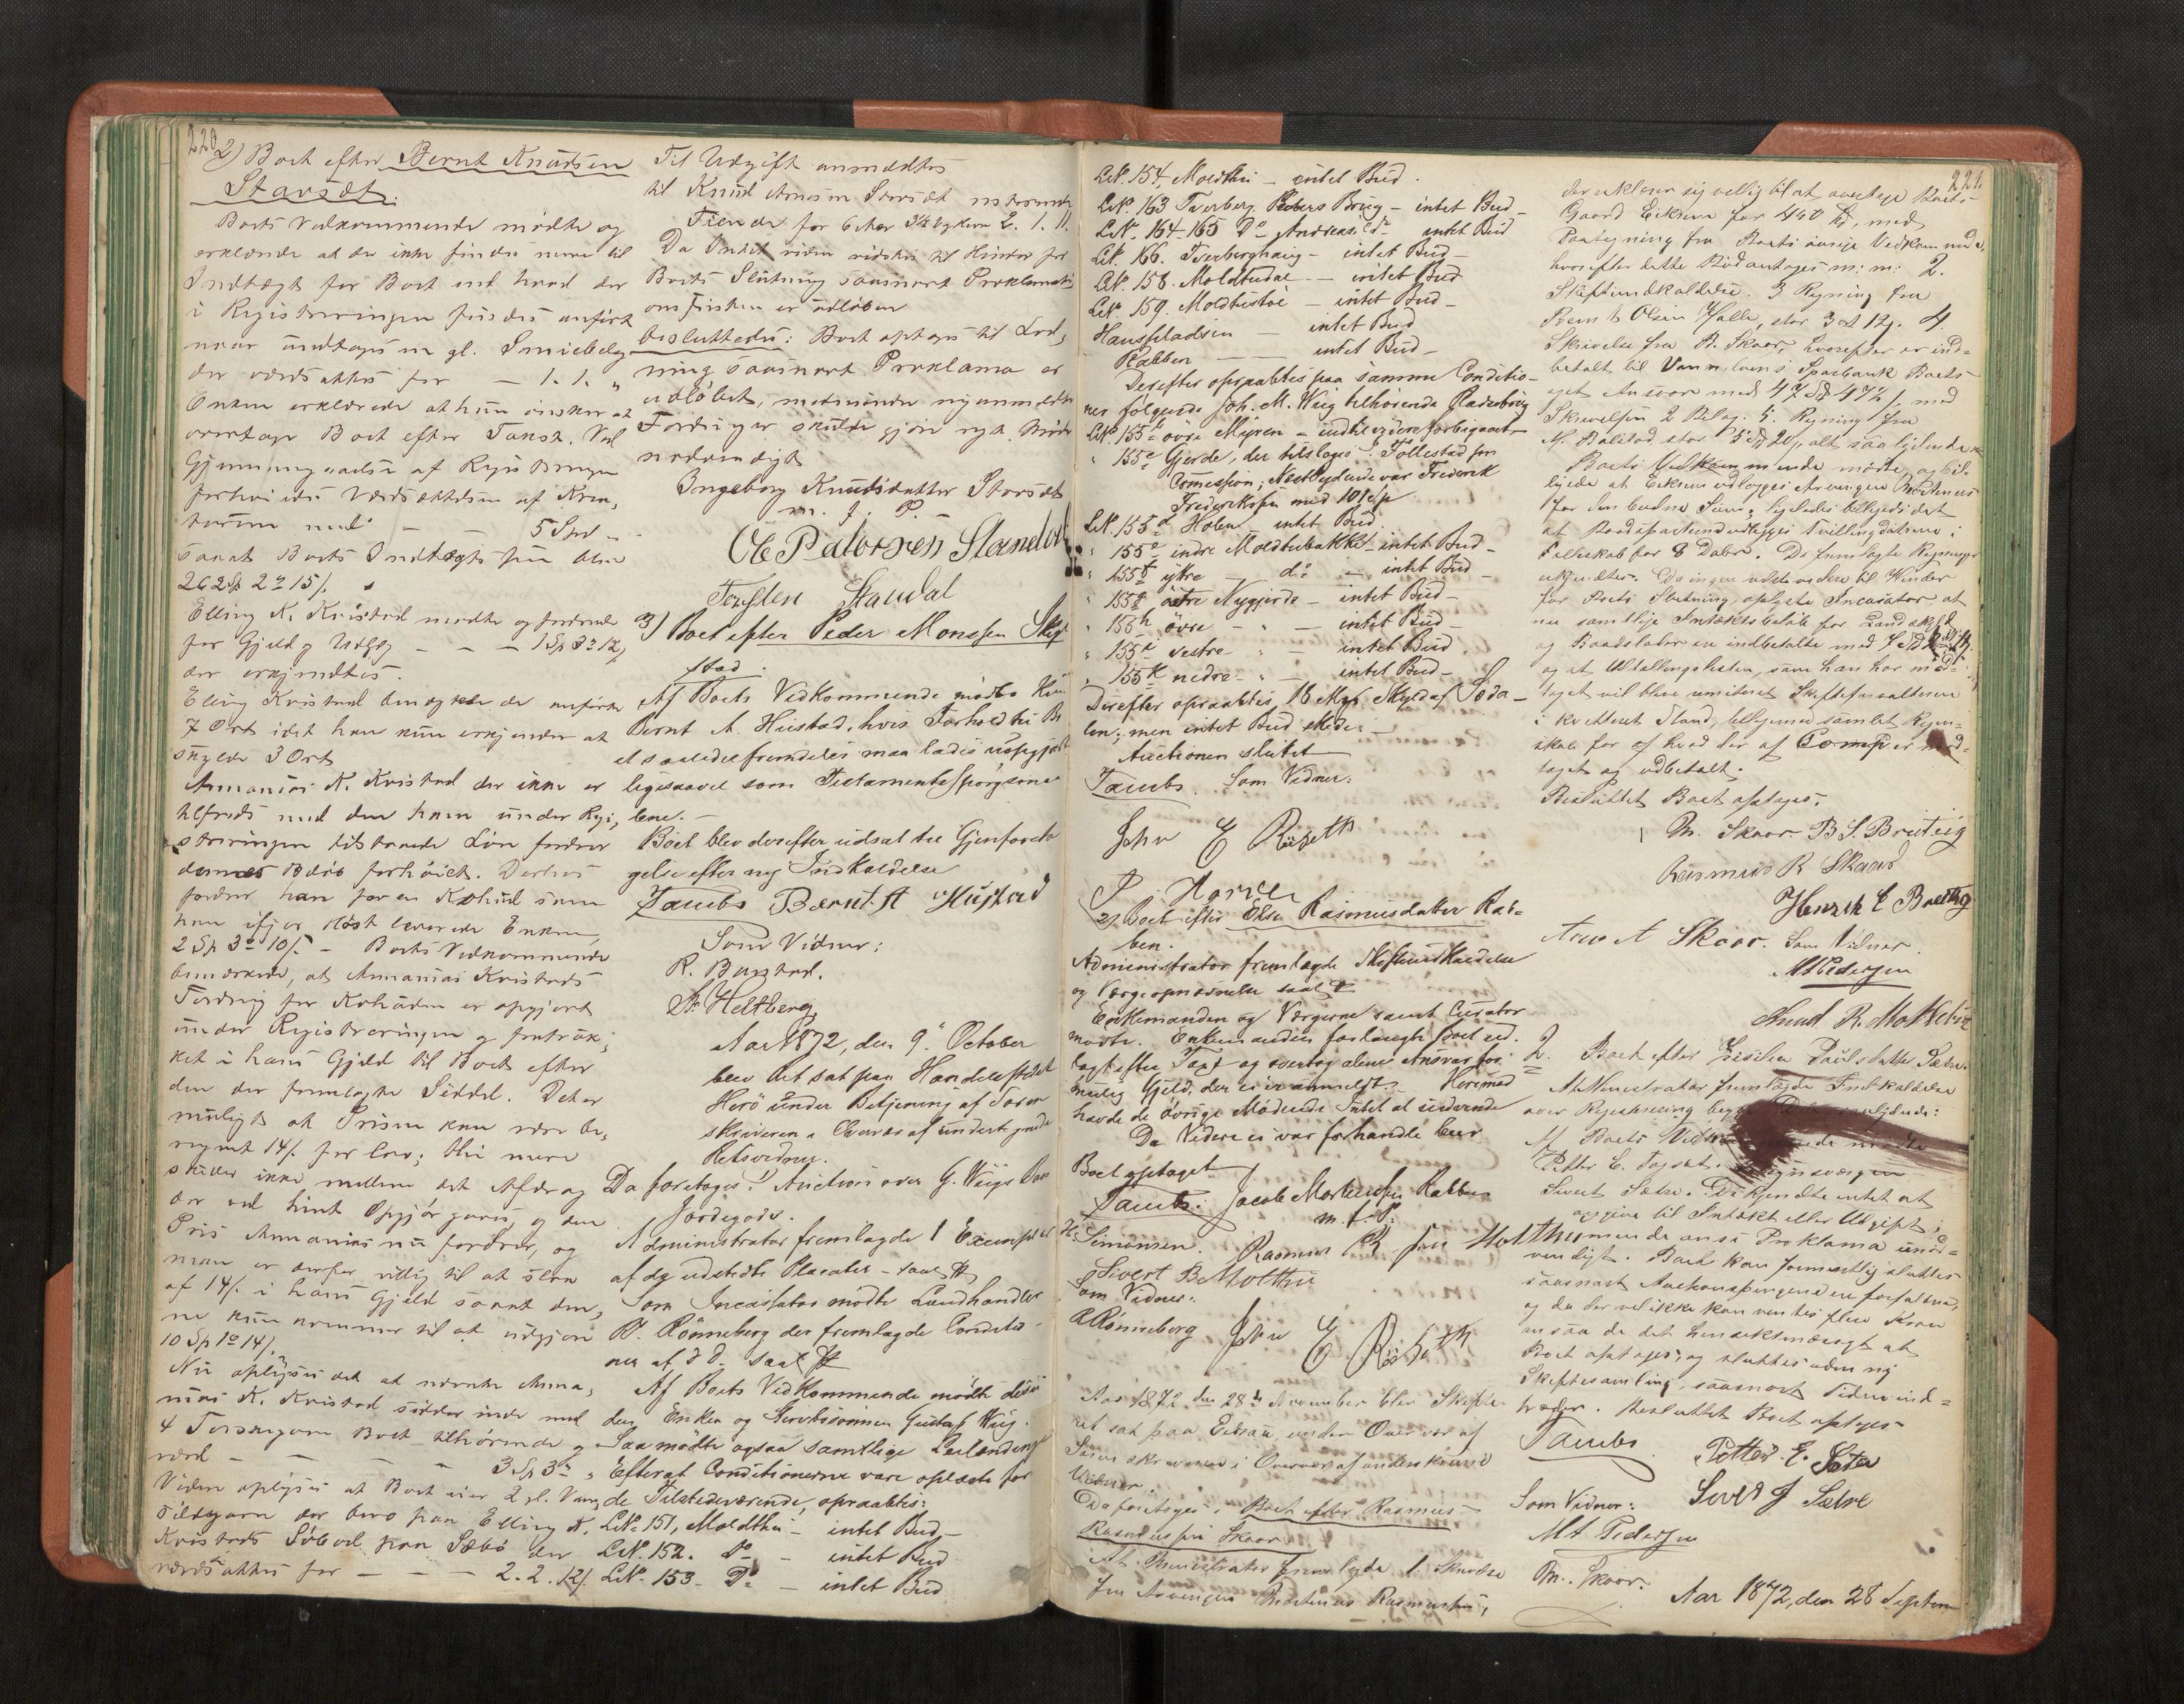 220
2) Boet efter Bernt Knudsen
Storsæt.
Boets Vedkommende mødte og
erklærede at der ikke findes mere til
Indtægt for Boet end hvad der
i Registreringen findes anført
naar undtages en gl.
der værdsattes for — 1. 1. "
Enken erklærede at hun ønsker at
overtage Boet efter Taxt. Ved
Gjennemgaaelse af Registreringen
forhøiedes Værdsættelsen af
med — — 5 Spd "
saa at Boets Indtægt bliver
262 Sp 2 o 15 /.
Elling K. Kristad mødte og fordrede
for Gjeld og Udlæg — — — 1 Sp 3 o 12 /
der erkjendtes.
Elling Kristad benægtede de anførte
7 Ort idet han kun erkjender at
skylde 3 Ort
Annanias K. Kristad der ikke er
tilfreds med den ham under Regi,
streringen tilstaaede Løn fordrer
dennes Beløb forhøiet. Derhos
fordrer han for en Kohud som
han ifjor Høst leverede Enken,
2 Sp 3 o 10 /. — Boets Vedkommende
bemærkede, at Annanias Kristads
Fordring for Kohuden er opgjort
under Registreringen og fratruk,
ket i hans Gjeld til Boet efter
den der fremlagte Seddel. Det er
muligt at Prisen kan være be,
regnet 14 /. for lav; thi mere
skiller ikke mellem det Afdrag
der ved hint Opgjør gaves og den
Pris Annanias nu fordrer, og
man er derfor villig til at slaa
af 14 /. i hans Gjeld saa at den,
ne kun kommer til at udgjøre
10 Sp 1 o 14 /.
Nu oplyses det at nævnte Anna,
nias K. Kristad sidder inde med
4 Torskegarn Boet tilhørende
værd — — — — 3 Sp 3 o "
Viden oplyses at Boet eier 2 gl. Vaar,
sildgarn der bero paa Elling K.
Kristads Søbod paa Sæbø der
værdsattes for — — — 2. 2. 12 /.
Til Udgift anmeldtes
til Knud Arnesen Storsæt
Tiende for 6 Aar 34 Byk 2. 1. 11.
Da Intet viden vidstes til Hinder for
Boets Slutning saasnart Proklamati,
onsfristen er udløben
besluttedes: Boet optages til Lod,
ning saasnart Proklama er
udløbet, medmindre nyanmeldte
Fordringer skulde gjøre nyt Møde
nødvendigt
Ingeborg Knudsdatter Storsæt
m. f. P.
Ole Petersen Standal
Torsten Standal
3) Boet efter Peder Monssen Skog
stad.
Af Boets Vedkommende mødte Kun
Bernt A. Hustad, hvis Forhold til Bo
et saaledes fremdeles maa lades uopgjort
ligesaavel som Testamentsspørgsmaa
lene. —
Boet blev derefter udsat til Gjenforeta
gelse efter ny Indkaldelse
Jacobs Bernt A Hustad
Som Vidner:
R. Bangstad.
Fr. Heltberg
Aar 1872, den 9. October
blev Ret sat paa Handelsstedet
Herø under Betjening af Soren
skriveren i Overvær af undertegnede
Retsvidner.
Da foretoges: 1) Auction over G. Wiigs Boes
Jordegods.
Administrator fremlagde 1 Exemplar
af de udstedte Placater — saal
Som Incassator mødte Landhandler
R. Rønneberg der fremlagde Conditio-
ner af d.D. saal
Af Boets Vedkommende mødte disse
den Enken og Stervbosønnen Gustaf Wiig.
Saa mødte ogsaa samtlige Leilændinge
Efterat Conditionerne vare oplæste for
de Tilstedeværende, opraabtes:
LNo 151, Moldthu — intet Bud —
LNo. 152. Do — intet Bud
LNo. 153. Do — intet Bud
221.
LNo. 154, Moldthu — intet Bud.
LNo. 163 Tverberg Peders Brug — intet Bud —
LNo. 164. 165 Do Andreas do intet Bud
LNo. 166. Tverberghaug — intet Bud —
LNo. 158. Moldtudal — intet Bud
LNo. 159. Moldtustøe — intet Bud —
Hauspladsen — intet Bud
Rabben — intet Bud —
Derefter opraabtes paa samme Conditio-
ner følgende Joh. M. Wiig tilhørende Pladsebrug
LNo. 155 b øvre Myren — indtil videre forbigaaet
" 155 c Gjerde, der tilsloges Follestad fra
Comission; Næstbydende var Frederik
Frederiksen med 10 Spd
LNo. 155 d Holen — intet Bud.
" 155 e indre Moldtubakke — intet Bud —
" 155 f ytre — do — intet Bud —
" 155 g østre Nygjerde — intet Bud —
" 155 h øvre — " — intet Bud —
" 155 i vestre — " — intet Bud.
" 155 k nedre — " — intet Bud —
Derefter opraabtes 18 Mks Skyld af Søda-
len; men intet Bud skede. —
Auctionen sluttet
Jacobs. Som Vidner:
John E Riiseth
P. Hansen
2) Boet efter Else Rasmusdatter Rab-
ben.
Administrator fremlagde Skifteindkaldelse
og Værgeopnævnelse saal
Enkemanden og Værgerne samt Curator
mødte. Enkemanden forlangte Boet ud-
lagt efter Taxt og overtog alene Ansvar for
mulig Gjeld, der ei er anmeldt. — Herimod
havde de øvrige Mødende Intet at indvende
Da Videre ei var forhandle blev
Boet optaget
Jacobs. Jacob Mortensen Rabben
m. f. P.
H. Simonsen. Rasmus R Molthu
Sivert B Molthu
Som Vidner:
R Rønneberg John E Riiseth
Aar 1872 den 28de November blev Skifte-
ret sat paa Eidsaa, under Overvær af
Sorenskriveren i Overvær af underskrevne
Vidner.
Da foretoges 1. Boet efter Rasmus
Rasmussen Skaar
Administrator fremlagde 1. Skrivelse
fra Arvingen Rasmussen,
der erklærer sig villig til at overtage Boets
Gaard Eiksun for 440 Sp, med
Paategning fra Boets øvrige Vedkommende,
hvorefter dette Bud antages m: m: 2.
Skifteindkaldelse. 3 Regning fra
Bernt Olsen Halle, stor 3 ort 12 /. 4.
Skrivelse fra R. Skaar, hvorefter er ind-
betalt til Vannelvens Sparebank Boets
eget Ansvar med 47 Sp 47 2 /. med
Skrivelsen 2 Bilag. 5. Regning fra
M. Balstad stor 5 Sp 20 /, alt saalydende
Boets Vedkommende mødte og bil-
ligede at Eiksun udlægges Arvingen
for den budne Sum; ligeledes billigedes det
at Baadsparten udlægges Tvillingdøtrene i
Fælleskab for 8 Daler. De fremlagte Regninger
erkjendtes. Da ingen vidste viden til Hinder
for Boets Slutning, oplyste Incassator, at
nu samtlige Indtægtsbeløb for Landskyld
og Baadsladen er indbetalte med 7
og at Udtallingslisten, som han har med-
taget vil blive remitteret Skifteforvalteren
i kvitteret Stand, tilligemed samlet Regn-
skab for af hvad der af Comp er mod-
taget og udbetalt.
Besluttet Boet optages.
R. Skaar B S. Brateig
Rasmus R Skaar
Henrik E Bratteig
Arne A Skaar. Som Vidner.
M A Pedersen
Knud R. Mokleb
2. Boet efter Gisken Paulsdatter Sætre.
Administrator fremlagde Indkaldelse
over Registrering begge
Af Boets Vedkommende mødte
Petter E. Sætre.
Sivert Sætre. De kjendte intet at
opgive til Indtækt eller Udgift,
mende ansaa Proklama unød-
vendigt. Boet kan formentlig sluttes
saasnart Auctionspengene ere forfaldne,
og da der vel ikke kan ventes flere Krav
ansaa de det hensigtsmæssigt at
Boet optages, og sluttes uden ny
Skiftesamling, saasnart Tiden ind-
træder. Besluttet Boet optages
Jacobs. Petter E. Sæter
Som Vidner: Sivert J Sætre
M A Pedersen
R. Skaar.
Aar 1872, den 28 Septem